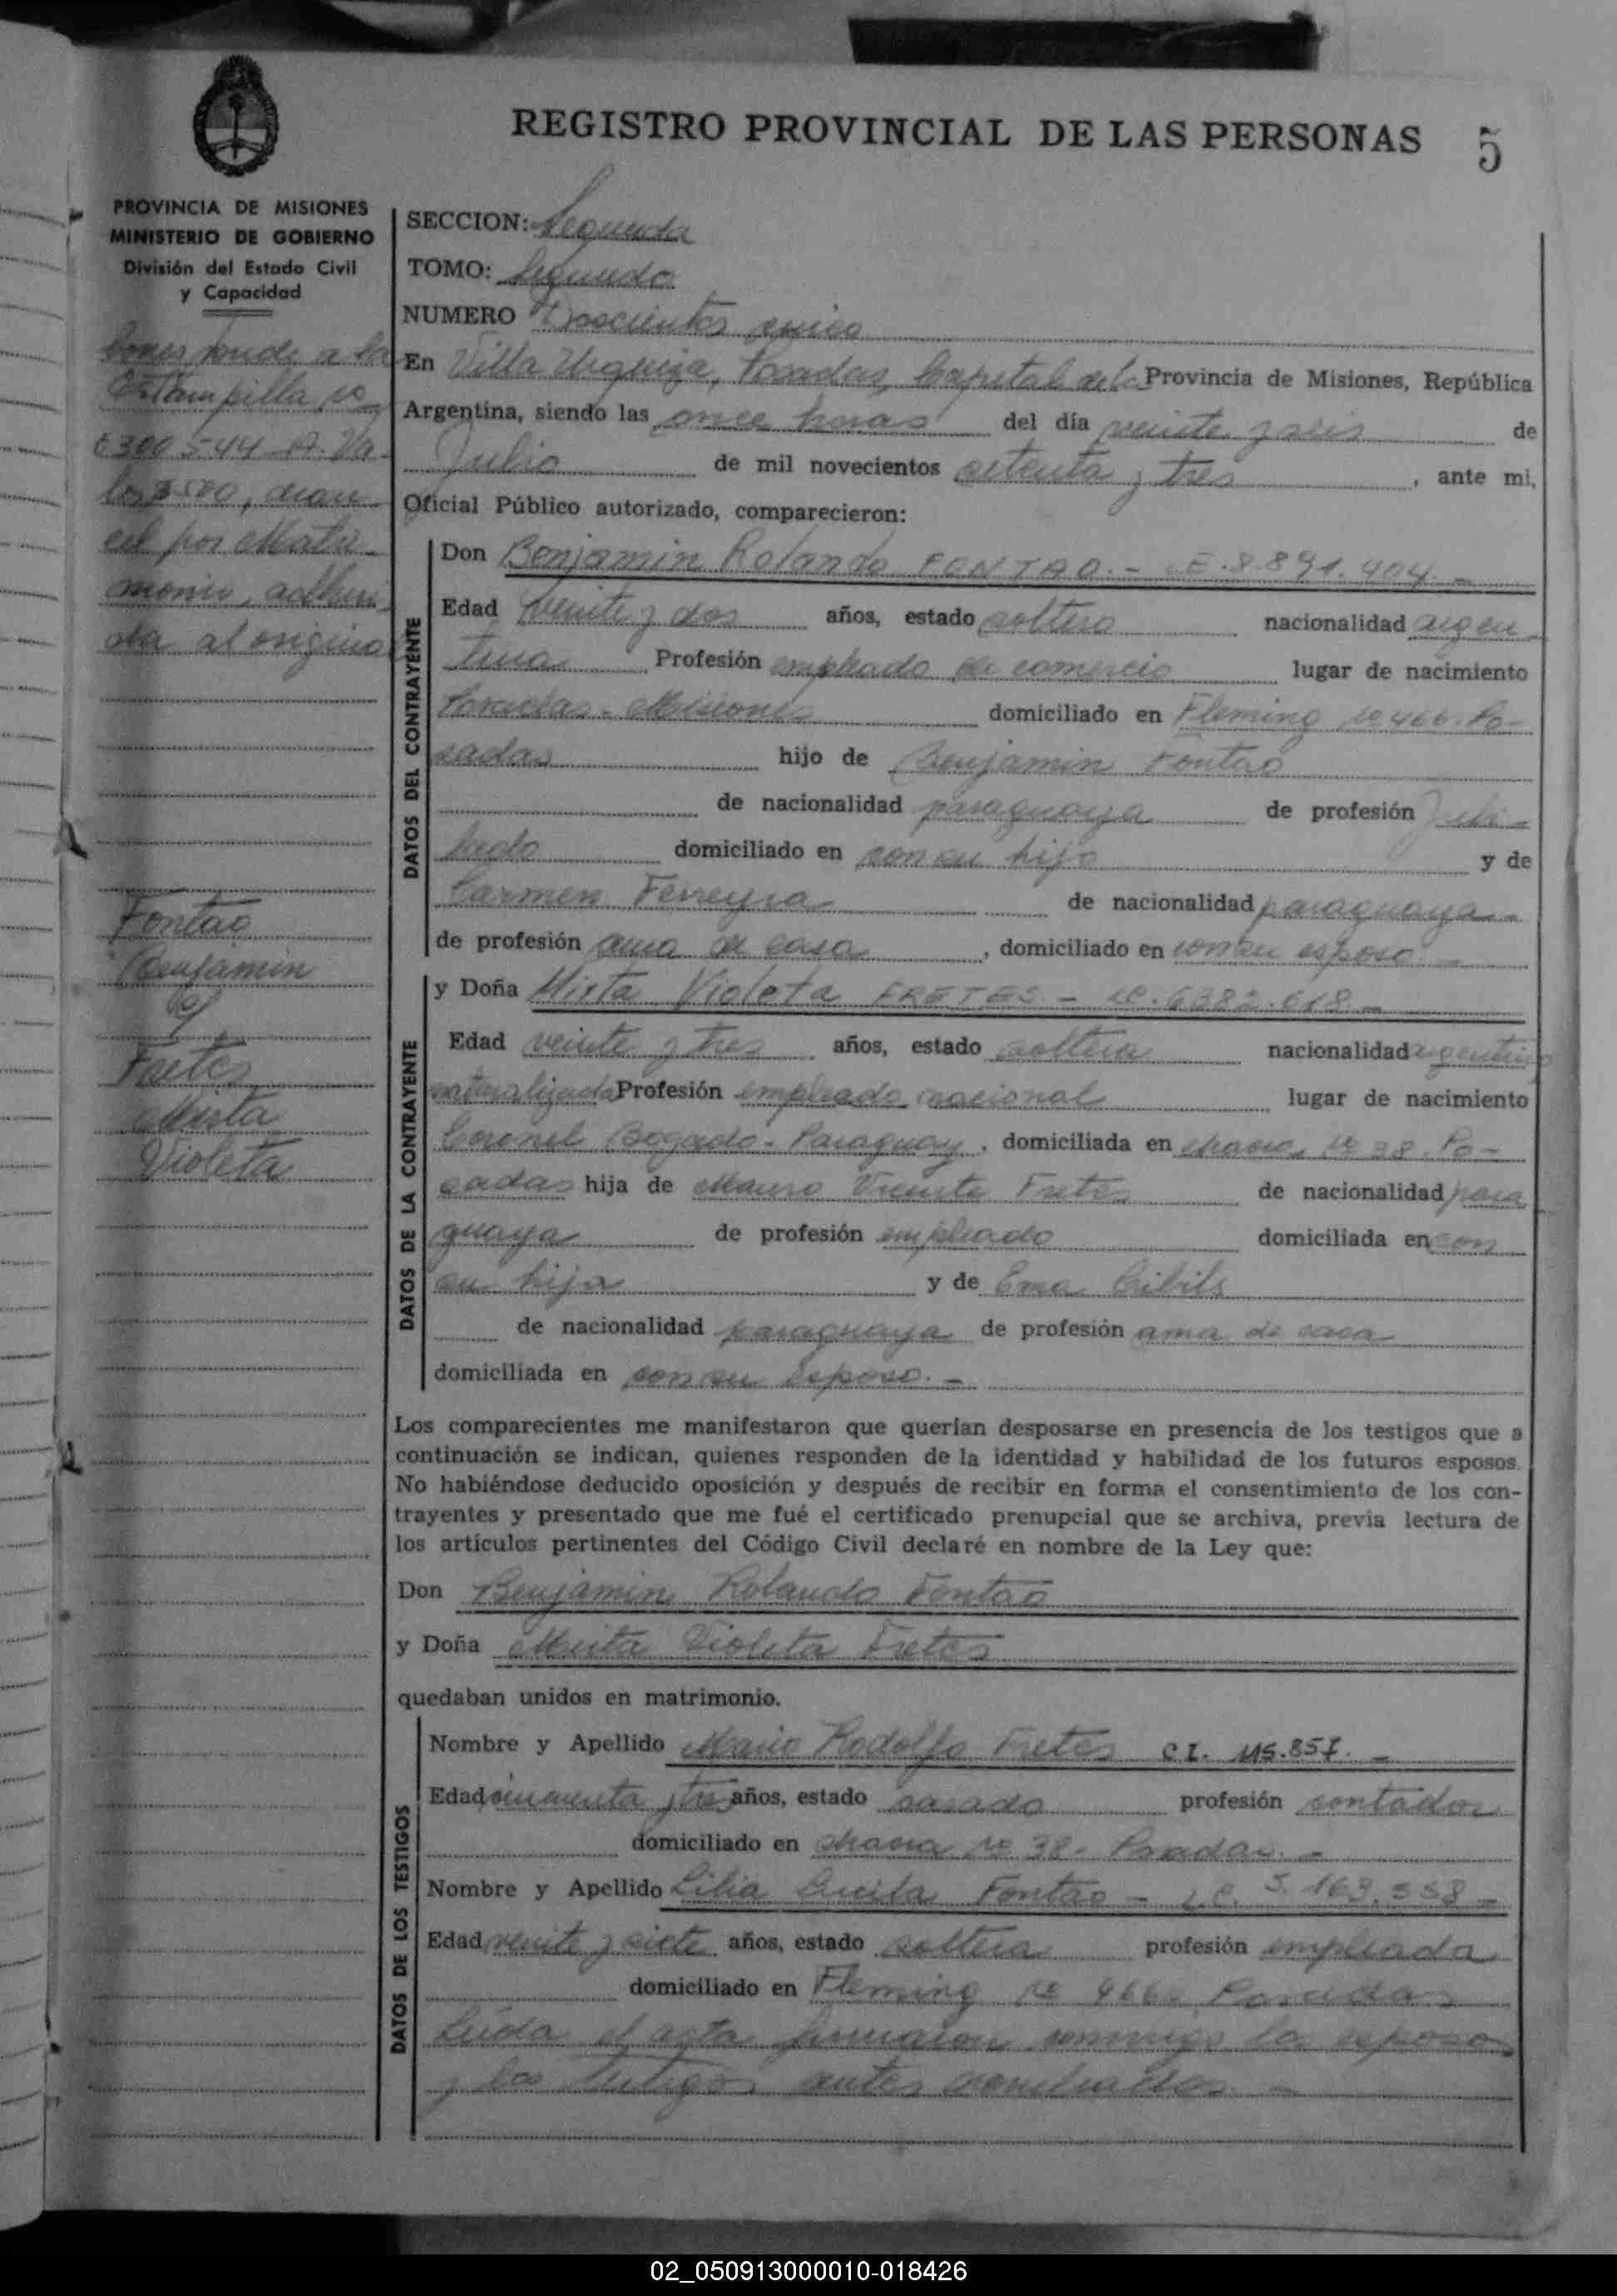 REGISTRO PROVINCIAL DE LAS PERSONAS 5
PROVINCIA DE MISIONES
MINISTERIO DE GOBIERNO
División del Estado Civil
y Capacidad
Corresponde a la
Estampilla no
6300544 A. Va-
lor $ 500, aran
cel por Matri
monio, adheri
da al original
Fontao
Benjamin
y
Fretes
Mirta
Violeta
SECCION: Segunda
TOMO: Segundo
NUMERO Doscientos cinco
En Villa Urquiza, Posadas, Capital de la Provincia de Misiones, República
Argentina, siendo las once horas del día veinte y seis de
Julio de mil novecientos setenta y tres, ante mi,
Oficial Público autorizado, comparecieron:
DATOS DEL CONTRAYENTE
Don Benjamin Rolando FONTAO.- LE.8.891.404.-
Edad veinte y dos años, estado soltero nacionalidad argen
tina Profesión empleado de comercio lugar de nacimiento
Posadas - Misiones domiciliado en Fleming no 466. Po-
sadas hijo de Benjamin Fontao
de nacionalidad paraguaya de profesión Jubi-
lado domiciliado en con su hijo y de
Carmen Ferreyra de nacionalidad paraguaya.-
de profesión ama de casa, domiciliado en con su esposo.-
DATOS DE LA CONTRAYENTE
y Doña Mirta Violeta FRETES - LC.6382.618.-
Edad veinte y tres años, estado soltera nacionalidad argentina
naturalizada Profesión empleada nacional lugar de nacimiento
Coronel Bogado - Paraguay, domiciliada en chacra no 38. Po-
sadas hija de Mauro Vicente Fretes de nacionalidad para
guaya de profesión empleado domiciliada en con
su hija y de Ema Cibils
de nacionalidad paraguaya de profesión ama de casa
domiciliada en con su esposo.-
Los comparecientes me manifestaron que querían desposarse en presencia de los testigos que a
continuación se indican, quienes responden de la identidad y habilidad de los futuros esposos.
No habiéndose deducido oposición y después de recibir en forma el consentimiento de los con-
trayentes y presentado que me fué el certificado prenupcial que se archiva, previa lectura de
los artículos pertinentes del Código Civil declaré en nombre de la Ley que:
Don Benjamin Rolando Fontao
y Doña Mirta Violeta Fretes
quedaban unidos en matrimonio.
DATOS DE LOS TESTIGOS
Nombre y Apellido Mario Rodolfo Fretes C.I. 115.857.-
Edad cincuenta y tres años, estado casado profesión contador
domiciliado en chacra no 38 - Posadas.-
Nombre y Apellido Lilia Lucila Fontao - L.C. 5.163.558-
Edad veinte y siete años, estado soltera profesión empleada
domiciliado en Fleming no 466. Posadas
Leída el acta firmaron conmigo los esposos
y los testigos antes nombrados.-
02_050913000010-018426